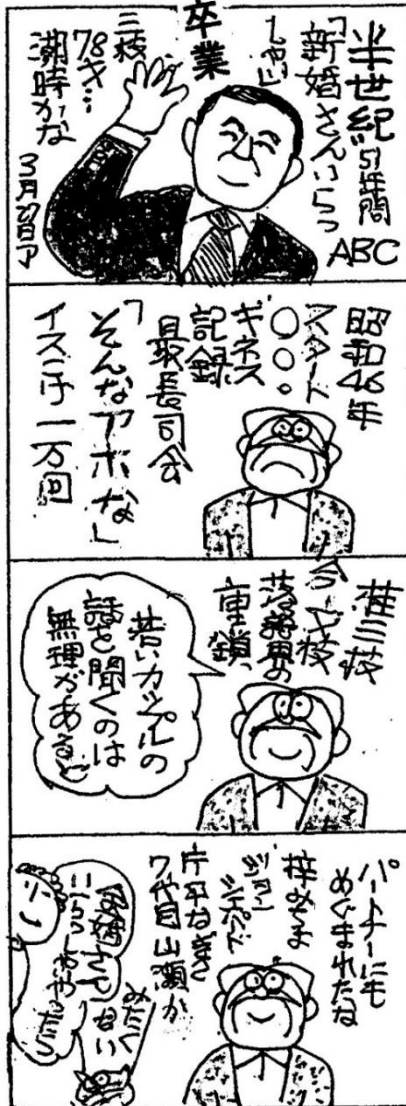 半世紀51年間
ABC
「新婚さんいらっ
しゃい」
卒業
三枝
78才…
潮時かな
3月
昭和46年
スタート
○○○
ギネス
記録
最長司会
「そんなアホな」
イスこけ一万回
桂三枝
今文枝
落語界の
重鎮
若いカップルの
話を聞くのは
無理があると
パートナーにも
めぐまれたな
梓みちよ
ジョーン
シェパード
片平なぎさ
7代目山瀬
いらっしゃったり
みたく
ない